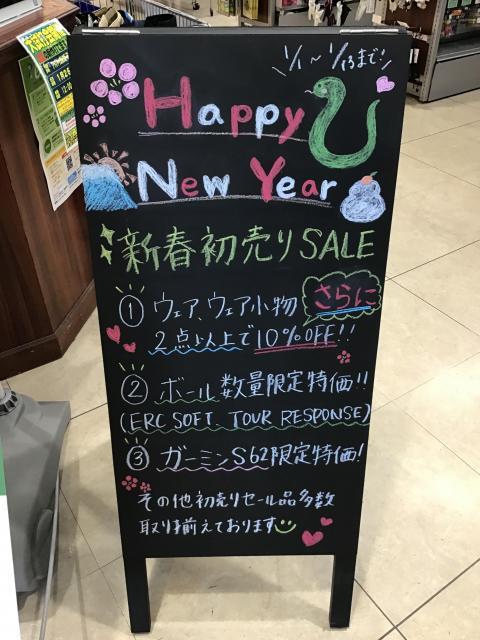 1/1~1/13まで!
Happy
New Year
新春初売りSALE
① ウェア、ウェア小物 さらに
2点以上で10%OFF!!
② ボール数量限定特価!!
(ERC SOFT、TOUR RESPONSE)
③ ガーミンS62限定特価!
その他初売りセール品多数
取り揃えております